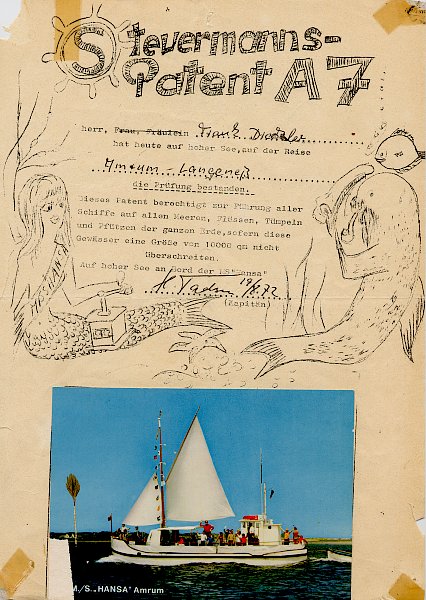 Steuermanns-
Patent A7
herr, Frau, Fräulein Frank
hat heute auf hoher See, auf der Reise
Amrum - Langeneß
die Prüfung bestanden.
Dieses Patent berechtigt zur Führung aller
Schiffe auf allen Meeren, Flüssen, Tümpeln
und Pfützen der ganzen Erde, sofern diese
Gewässer eine Größe von 10000 qm nicht
überschreiten.
Auf hoher See an Bord der MS"Hansa"
19/8.72
(Kapitän)
MS HANSA
M/S „HANSA" Amrum